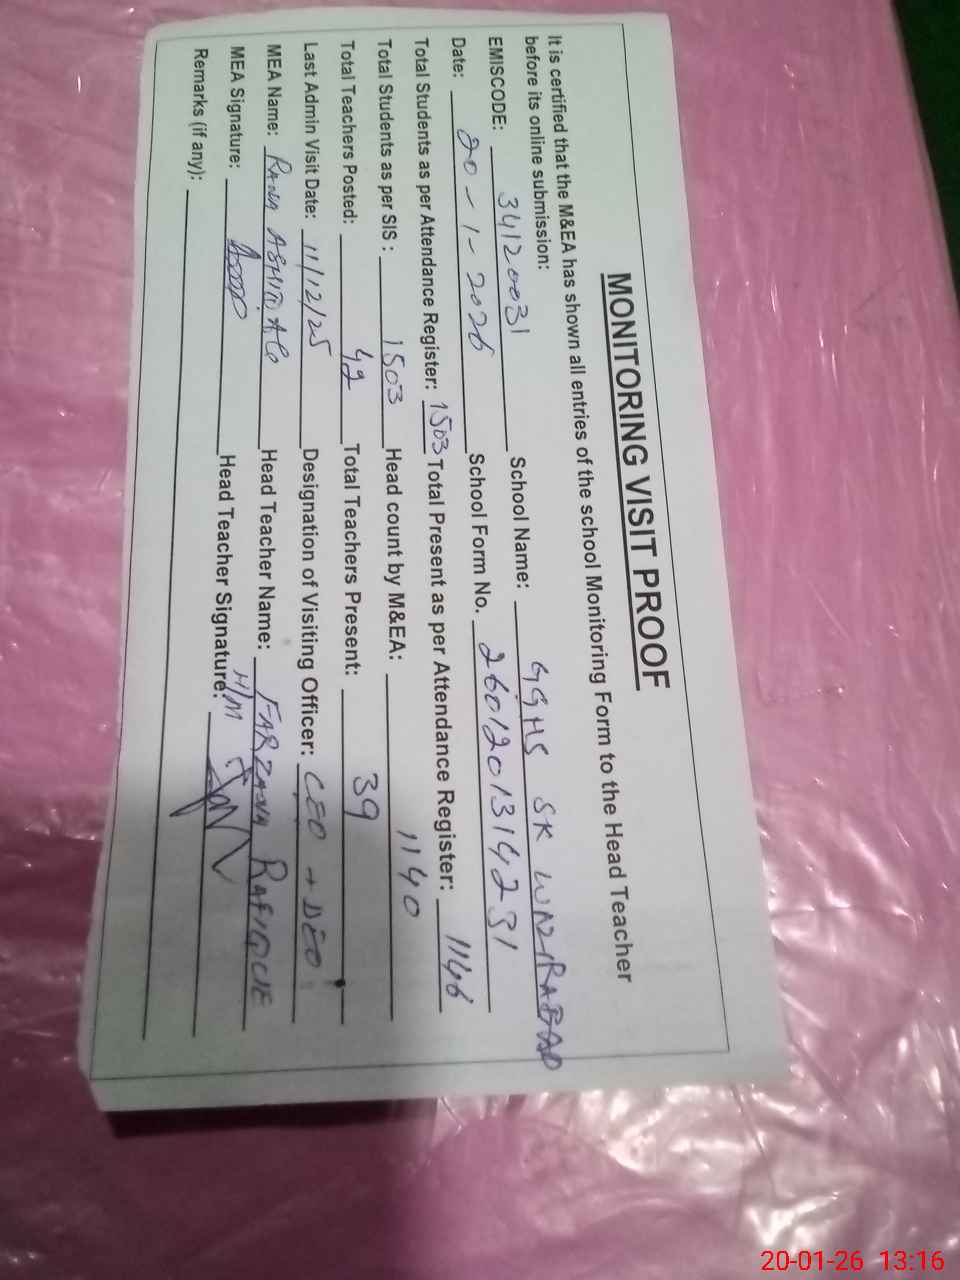 MONITORING VISIT PROOF
It is certified that the M&EA has shown all entries of the school Monitoring Form to the Head Teacher
before its online submission:
EMISCODE: 34120031 School Name: GGHS SK WAZIRABAD
Date: 20-1-2026 School Form No. 2601201314231
Total Students as per Attendance Register: 1503 Total Present as per Attendance Register: 1146
Total Students as per SIS: 1503 Head count by M&EA: 1140
Total Teachers Posted: 42 Total Teachers Present: 39
Last Admin Visit Date: 11/12/25 Designation of Visiting Officer: CEO + DEO
MEA Name: RANA Head Teacher Name: FARZANA RAFIQUE
MEA Signature: Head Teacher Signature: H/M
Remarks (if any):
20-01-26 13:16